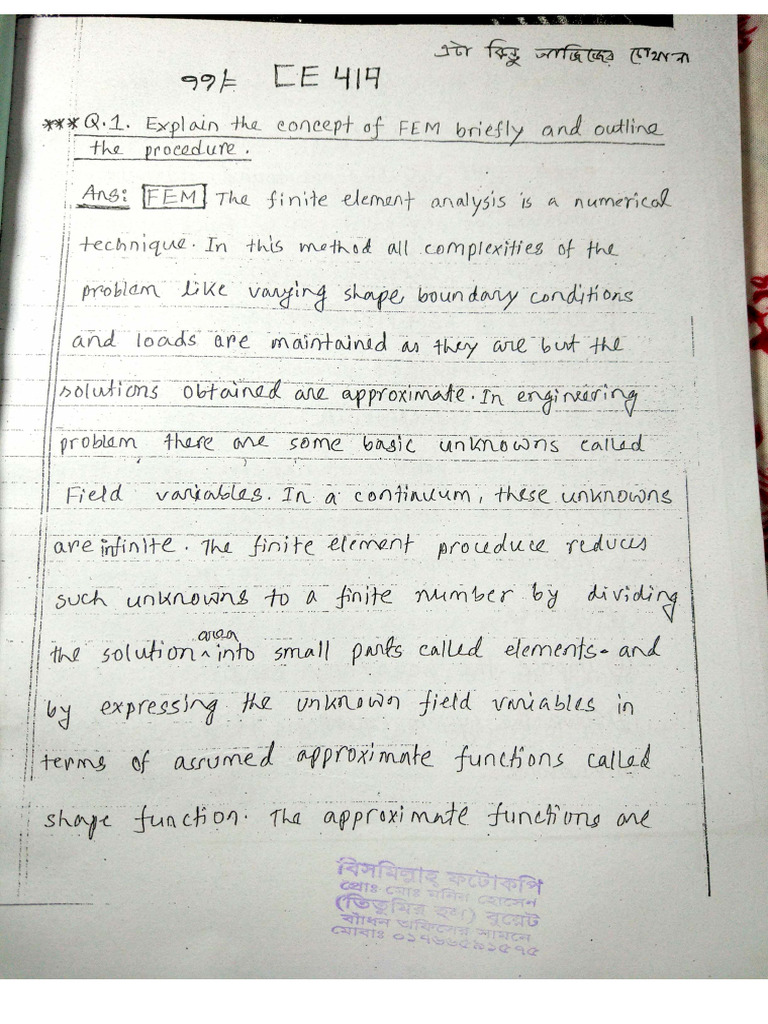 এটা কিন্তু
৭৭/= CE 419
***Q.1. Explain the concept of FEM briefly and outline
the procedure.
Ans: FEM The finite element analysis is a numerical
technique. In this method all complexities of the
problem like varying shape, boundary conditions
and loads are maintained as they are but the
solutions obtained are approximate. In engineering
problem there are some basic unknowns called
Field variables. In a continuum, these unknowns
are infinite. The finite element proceduce reduces
such unknowns to a finite number by dividing
the solution area into small parts called elements. and
by expressing the unknown field variables in
terms of assumed approximate functions called
shape function. The approximate functions are
বিসমিল্লাহ ফটোকপি
প্রোঃ মোঃ মনির হোসেন
(তিতুমির হল) বুয়েট
বাঁধন অফিসের সামনে
মোবাঃ